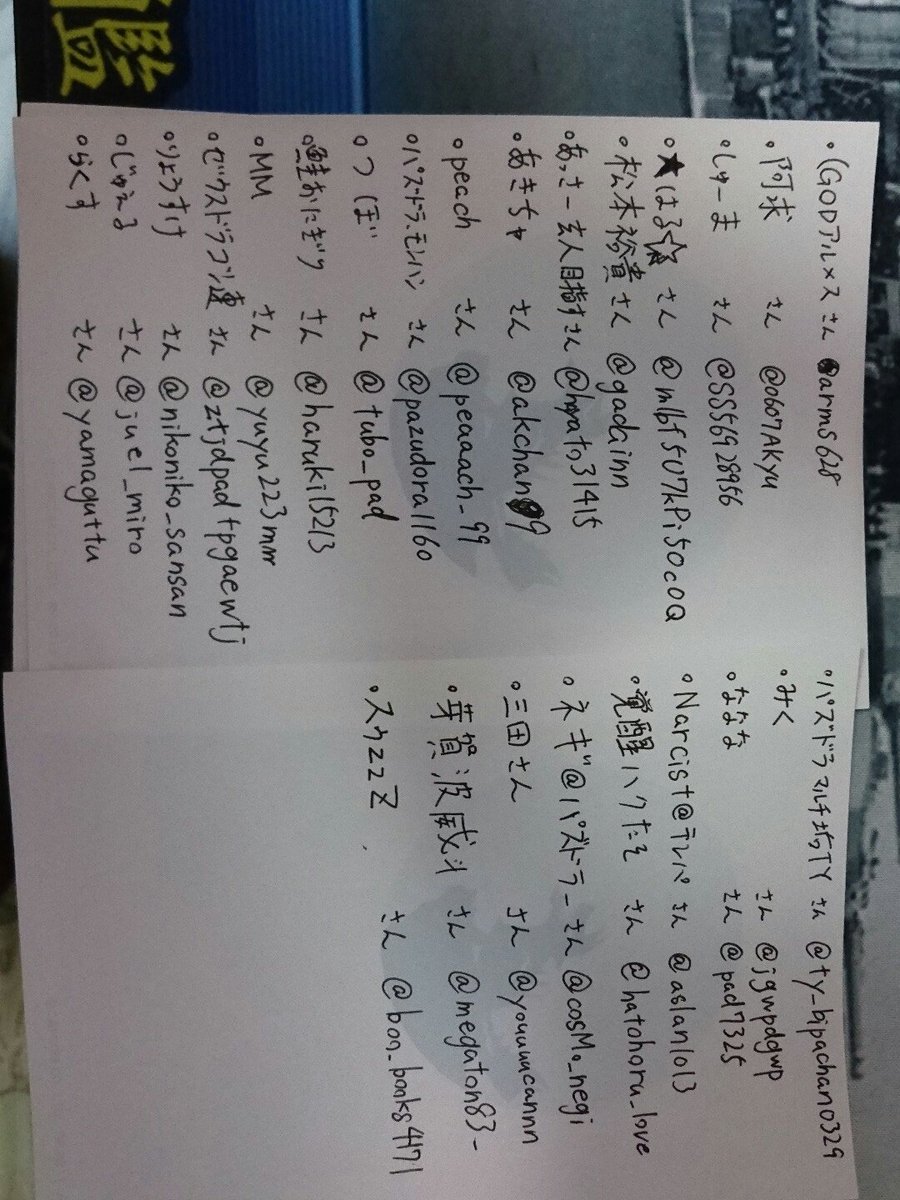 ・(GODアルメス さん @arms628
・阿求 さん @0607AKyu
・しゅーま さん @SSS6928956
・★はる☆ さん @mlbf5U7kPi50c0Q
・松本裕貴 さん @gadainn
・あっさー玄人目指す さん
・あきちゃ さん @akchan99
・peach さん @peaaach_99
・パズドラ.モンハン さん @pazudora1160
・つぼ さん @tubo_pad
・鮭おにぎり さん @haruki15213
・MM さん @yuyu223mm
・ゼウスドラゴン連 さん @ztjdpadtpgaewtj
・りょうすけ さん @nikoniko_sansan
・じゅえる さん @juel_miro
・らくす さん @yamaguttu
・パズドラマルチ垢TY さん @ty_bipachan0329
・みく さん @jgwpdgwp
・ななな さん @pad7325
・Narcist@テンパ さん @aslan1013
・覚醒ハクたそ さん @hatohoru_love
・ネギ@パズドラー さん @cosMo_negi
・三田さん さん @youuuucannn
・芽賀波威斗 さん @megaton83_
・スケzzZ さん @bon_books4171